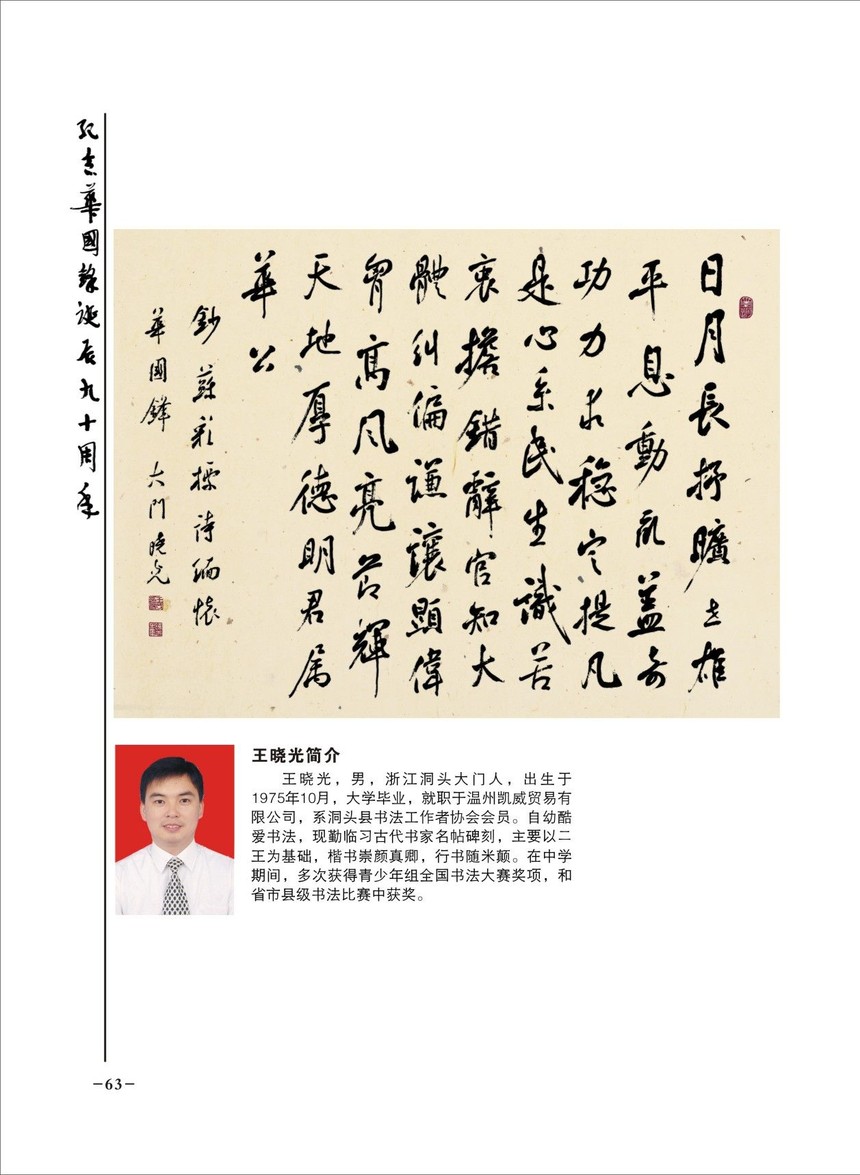 纪念華國鋒诞辰九十周年
日月長抒曠世雄
平息動乱蓋奇
功力求稳定提凡
是心系民生識苦
衷擔錯辭官知大
體糾偏謙讓顯偉
胷高風亮节輝
天地厚德明君属
華公
鈔蘇彩標诗緬懷
華國鋒 大门曉光
王晓光简介
王晓光，男，浙江洞头大门人，出生于
1975年10月，大学毕业，就职于温州凯威贸易有
限公司，系洞头县书法工作者协会会员。自幼酷
爱书法，现勤临习古代书家名帖碑刻，主要以二
王为基础，楷书崇颜真卿，行书随米颠。在中学
期间，多次获得青少年组全国书法大赛奖项，和
省市县级书法比赛中获奖。
-63-